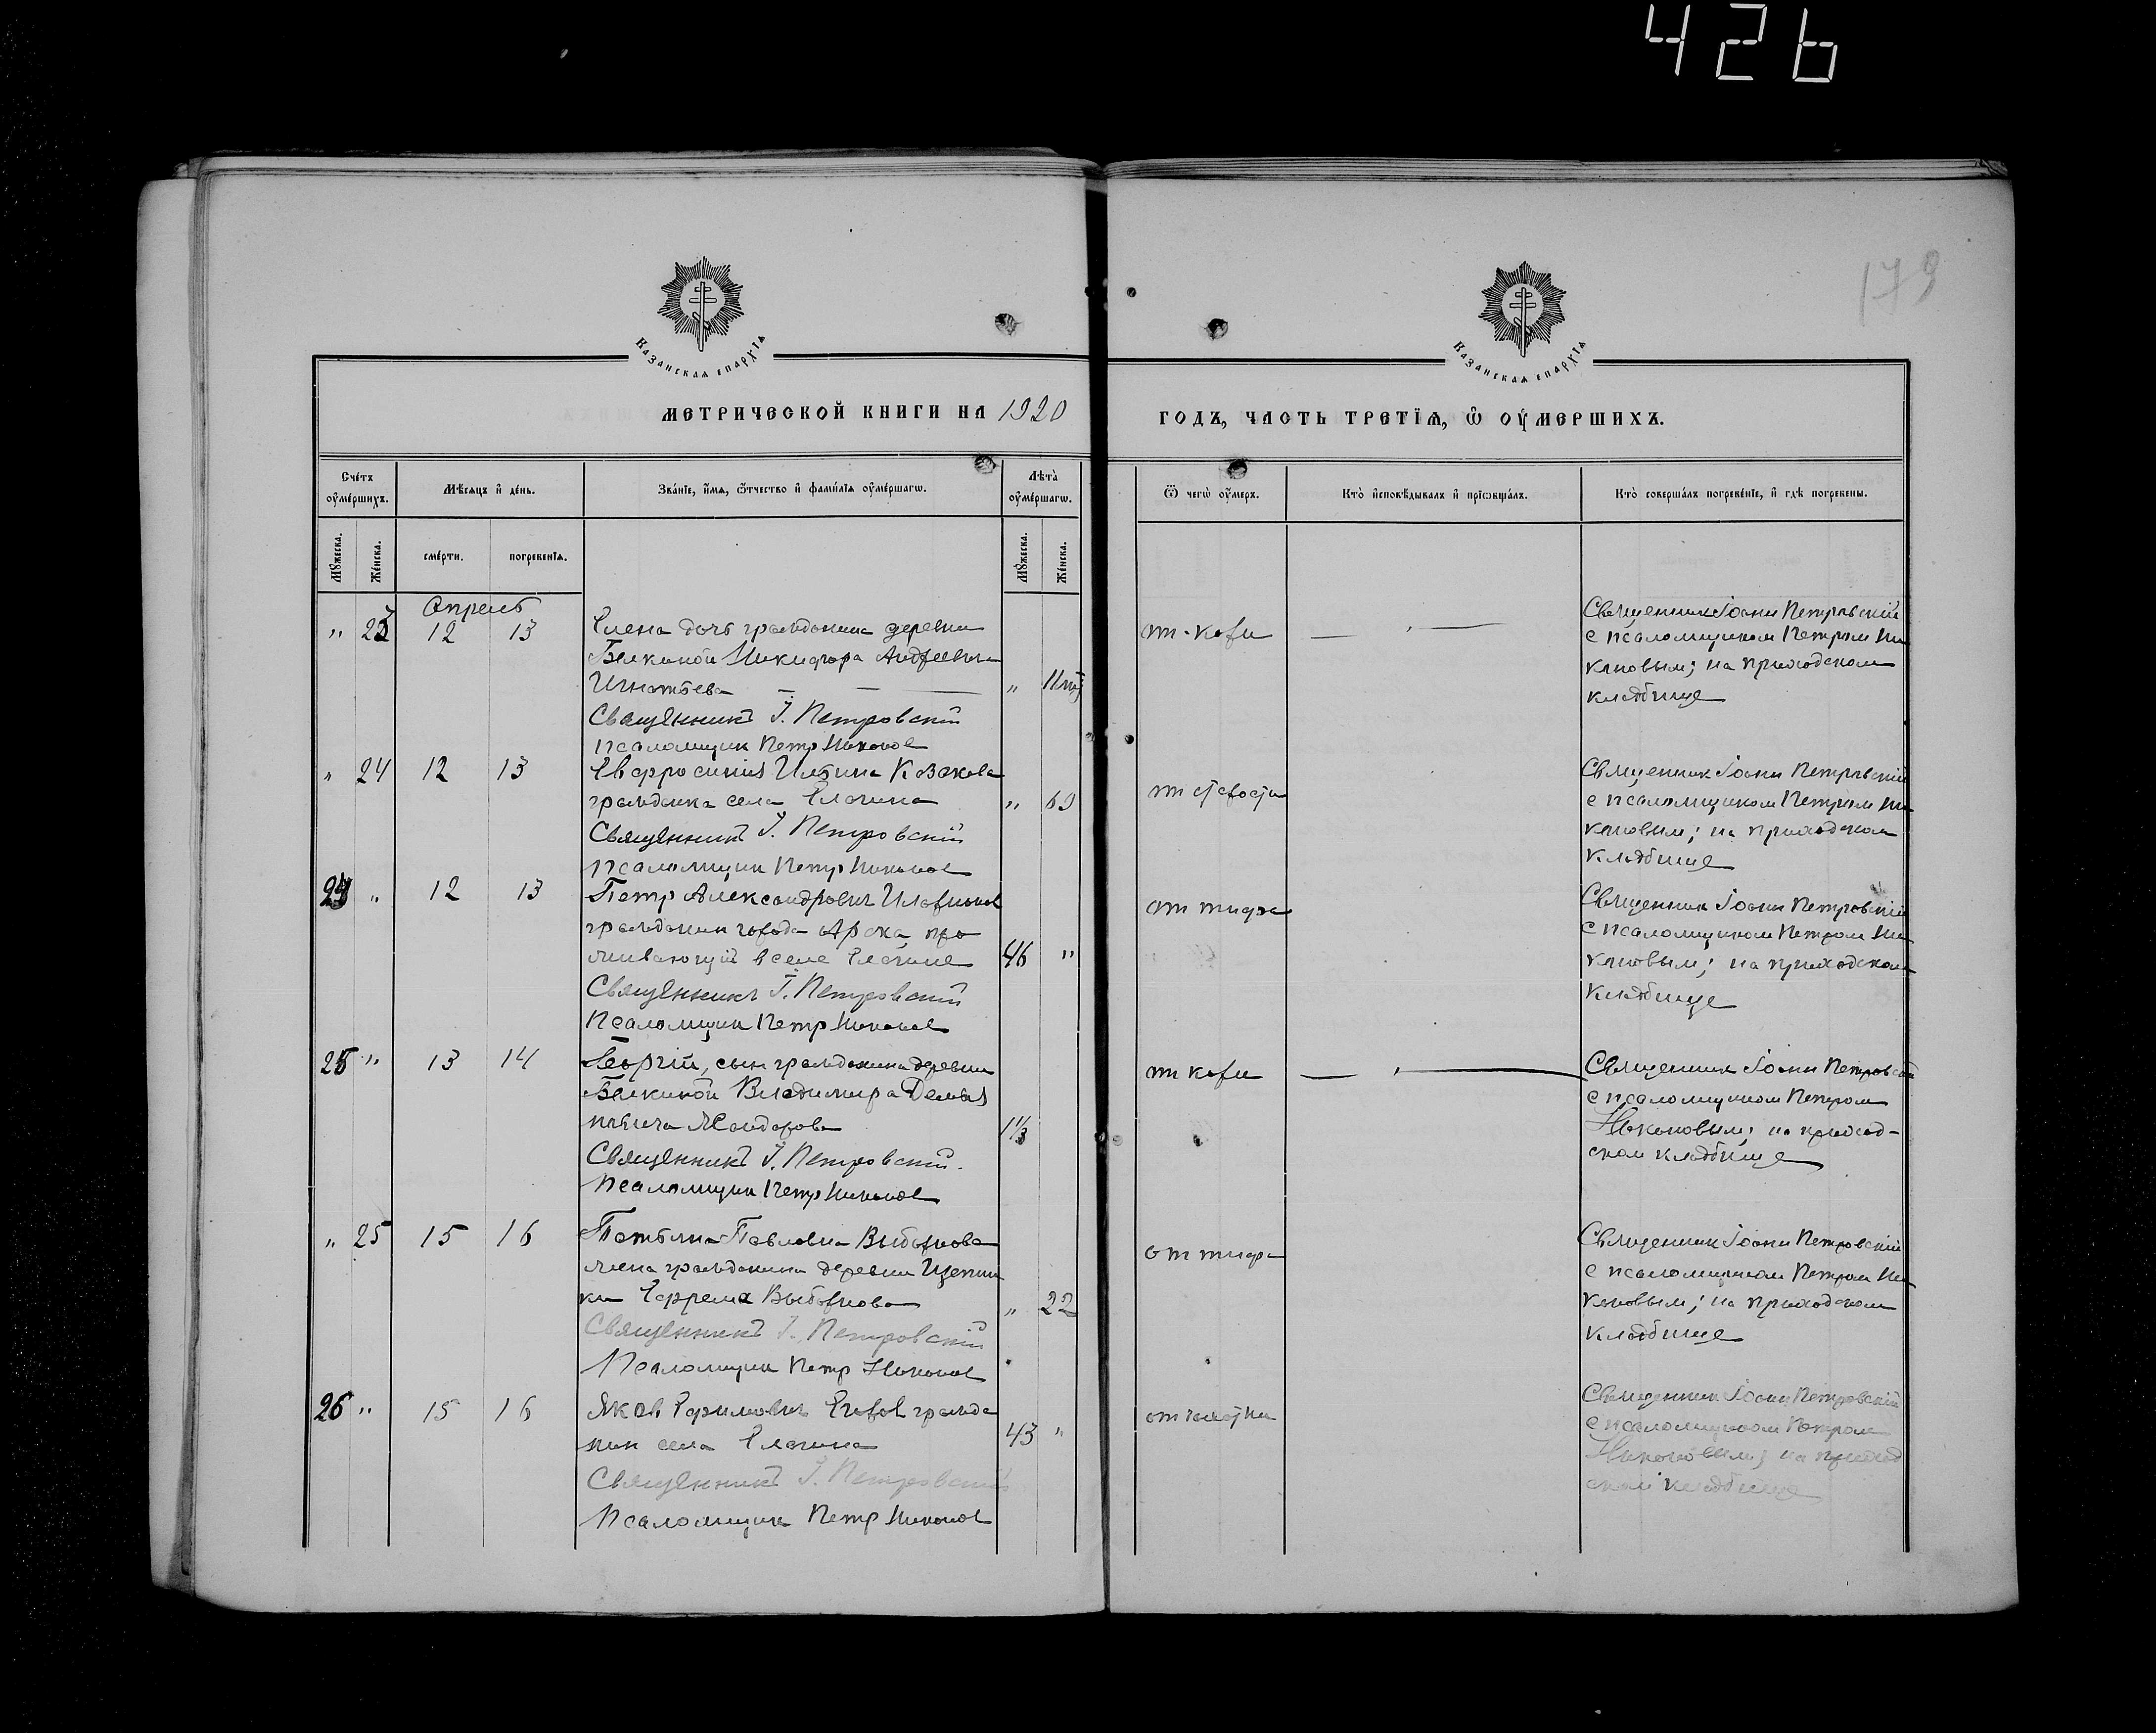 426
179
Казанская епархїя
Казанская епархїя
МЕТРИЧЕСКОЙ КНИГИ НА 1920
ГОДЪ, ЧАСТЬ ТРЕТІЯ, Ѡ ОУМЕРШИХЪ.
Счетъ оумершихъ.
Мѣсяцъ и день.
Званїе, имя, ѿчество и фамилїя оумершагѡ.
Лѣта оумершагѡ.
Ѿ чегѡ оумеръ.
Кто исповѣдывалъ и прїѡбщалъ.
Кто совершалъ погребенїе, и гдѣ погребены.
Мужеска.
Женска.
смерти.
погребенїя.
Мужеска.
Женска.
Апрель
" 23 12 13 Елена дочь гражданина деревни
Белкиной Никифора Андреевича
Игнатьева " 11
Священникъ І. Петровскій
псаломщик Петр Никонов
от кори
Священник Іоанн Петровскій
с псаломщиком Петром Ни
коновым; на приходском
кладбище
" 24 12 13 Евфросиния Ильина Казакова
гражданка села " 69
Священникъ І. Петровскій
псаломщик Петр Никонов
от старости
Священник Іоанн Петровскій
с псаломщиком Петром Ни
коновым; на приходском
кладбище
24 " 12 13 Петр Александрович Иларионов
гражданин города Арска, про
живающий в селе 46 "
Священникъ І. Петровскій
Псаломщик Петр Никонов
от тифа
Священник Іоанн Петровскій
с псаломщиком Петром Ни
коновым; на приходском
кладбище
25 " 13 14 Георгій, сын гражданина деревни
Белкиной Владимира Демья
новича 1 1/3
Священникъ І. Петровскій.
Псаломщик Петр Никонов
от кори
Священник Іоанн Петровскій
с псаломщиком Петром
Никоновым; на приход-
ском кладбище
" 25 15 16 Татьяна Павловна
жена гражданина деревни
Ефрема " 22
Священникъ І. Петровскій
Псаломщик Петр Никонов
от тифа
Священник Іоанн Петровскій
с псаломщиком Петром Ни
коновым; на приходском
кладбище
26 " 15 16 Яков Ефимович Егоров гражда
нин села 43 "
Священникъ І. Петровскій
Псаломщик Петр Никонов
от чахотки
Священник Іоанн Петровскій
с псаломщиком Петром
Никоновым; на приход
ском кладбище